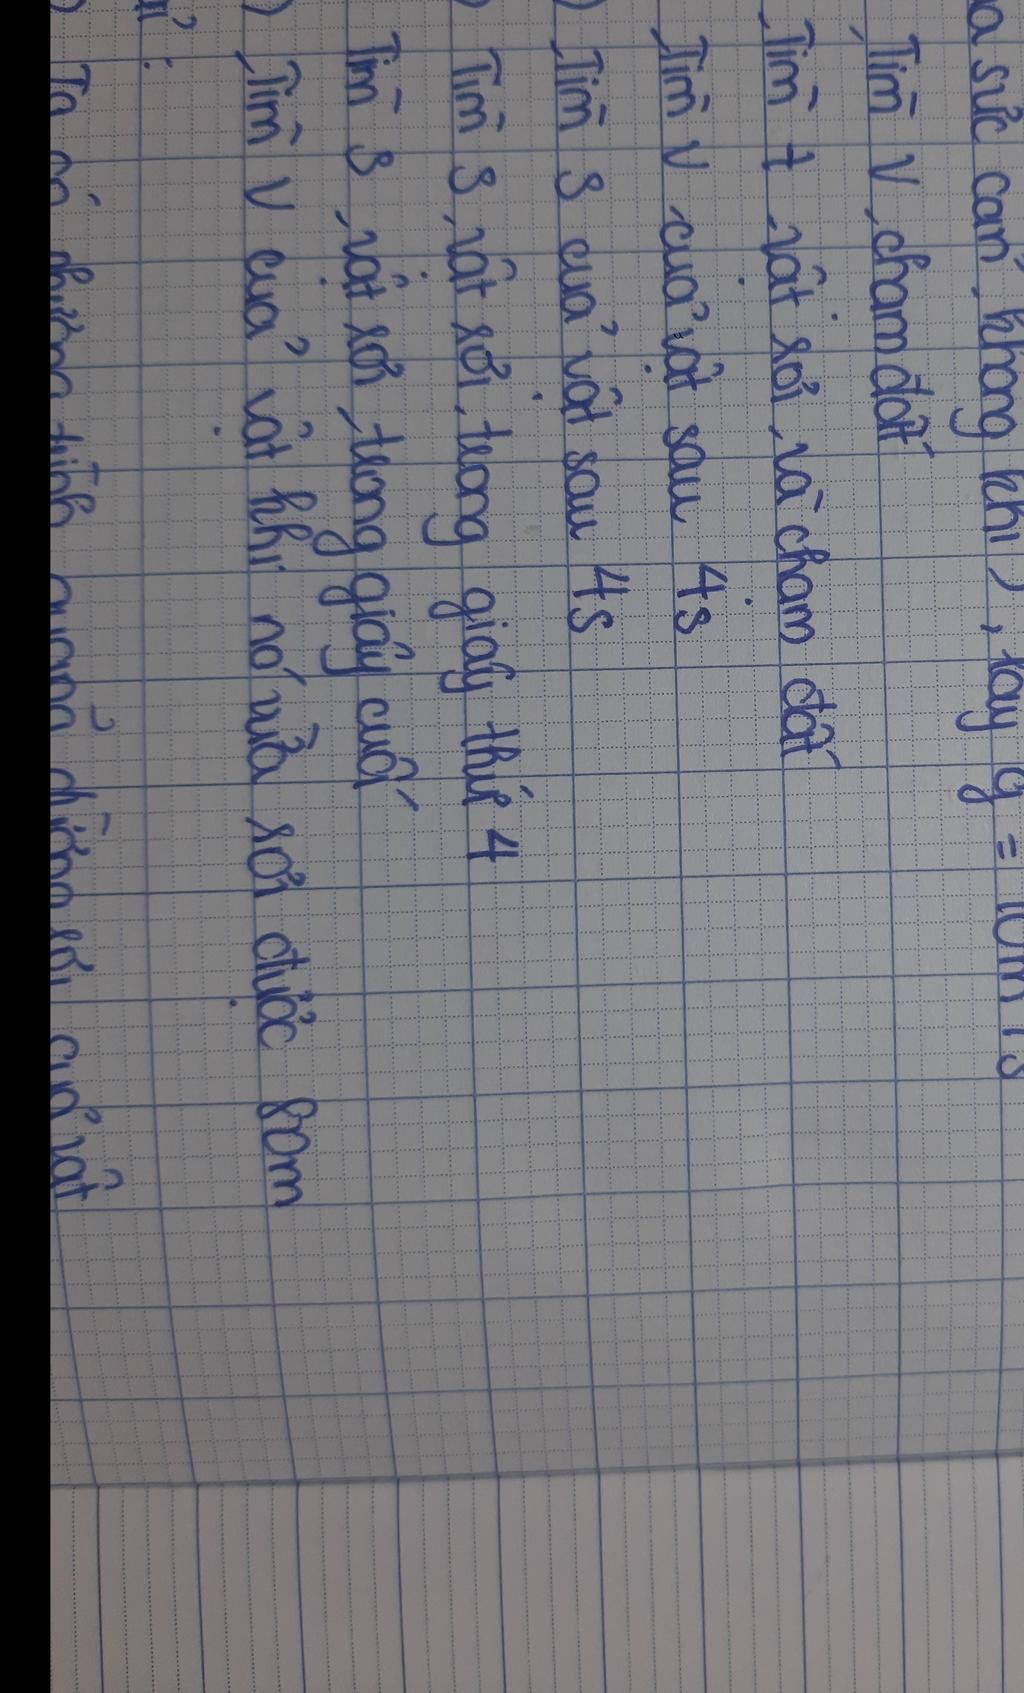 sức cản không khí), lấy g = 10m/s
Tìm v chạm đất
Tìm t vật rơi và chạm đất
Tìm v của vật sau 4s
) Tìm s của vật sau 4s
) Tìm s vật rơi trong giây thứ 4
Tìm s vật rơi trong giây cuối
) Tìm v của vật khi nó vừa rơi được 80m
:
) Ta có phương trình quãng đường rơi của vật